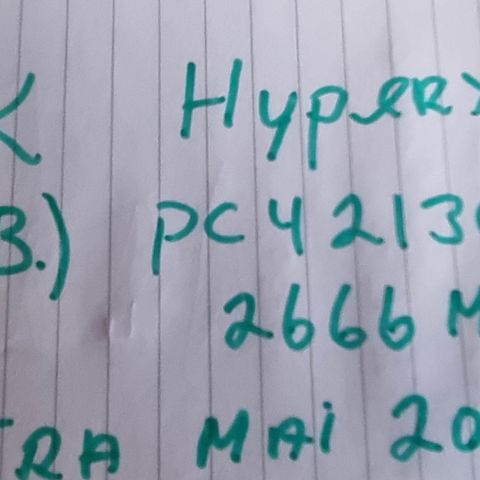 Hyper
3.) PC4 213
2666 M
RA MAI 20